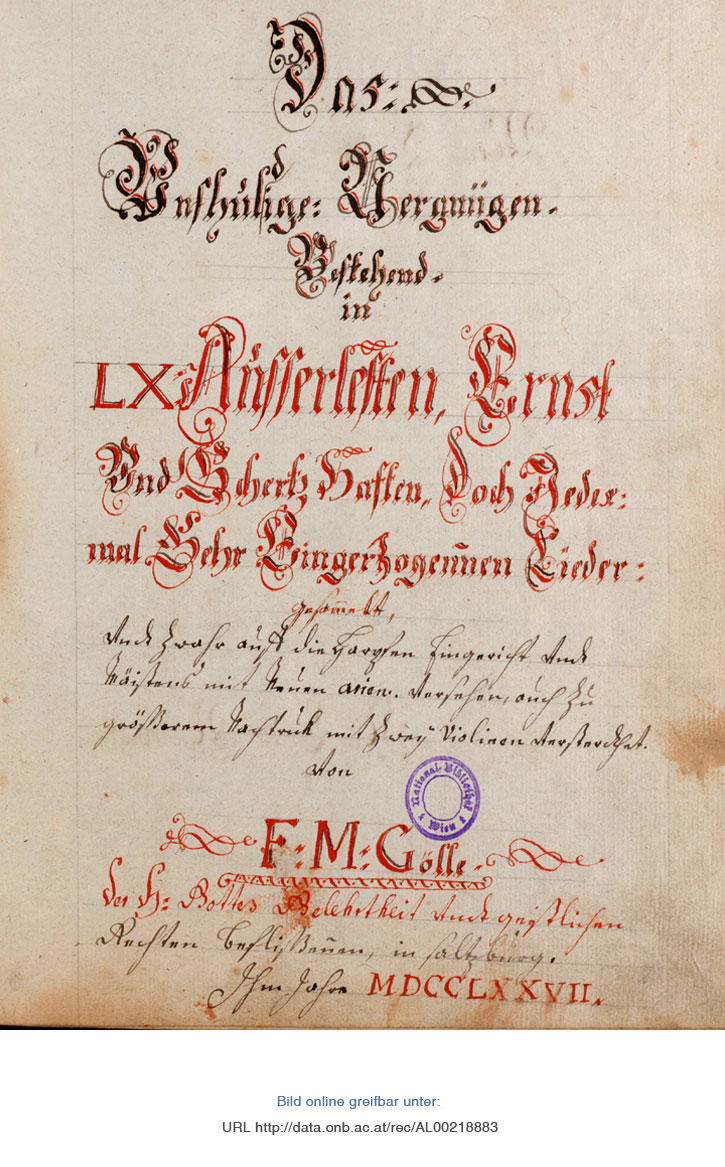 Das:
Vnshuldige: Vergnügen.
Bestehend.
in
LX Aüsserlesten, Ernst
Vnd Schertz Hafften, Doch Jeder:
mal Sehr Eingerzogennen Lieder:
gesamelt,
Vndt Zwahr auff die Harpfen Eingericht Vndt
Maistens mit Neuen arien. Versehen, auch Zu
größerem Nachtruk mit Zwey Violinen Versterckhet.
Von
National-Bibliothek
Wien
F: M: Gölle.
der H: Gottes Gelehrtheit Vndt geistlichen
Rechten beflißenen, in saltzburg.
Ihm Jahre MDCCLXXVII.
Bild online greifbar unter:
URL http://data.onb.ac.at/rec/AL00218883